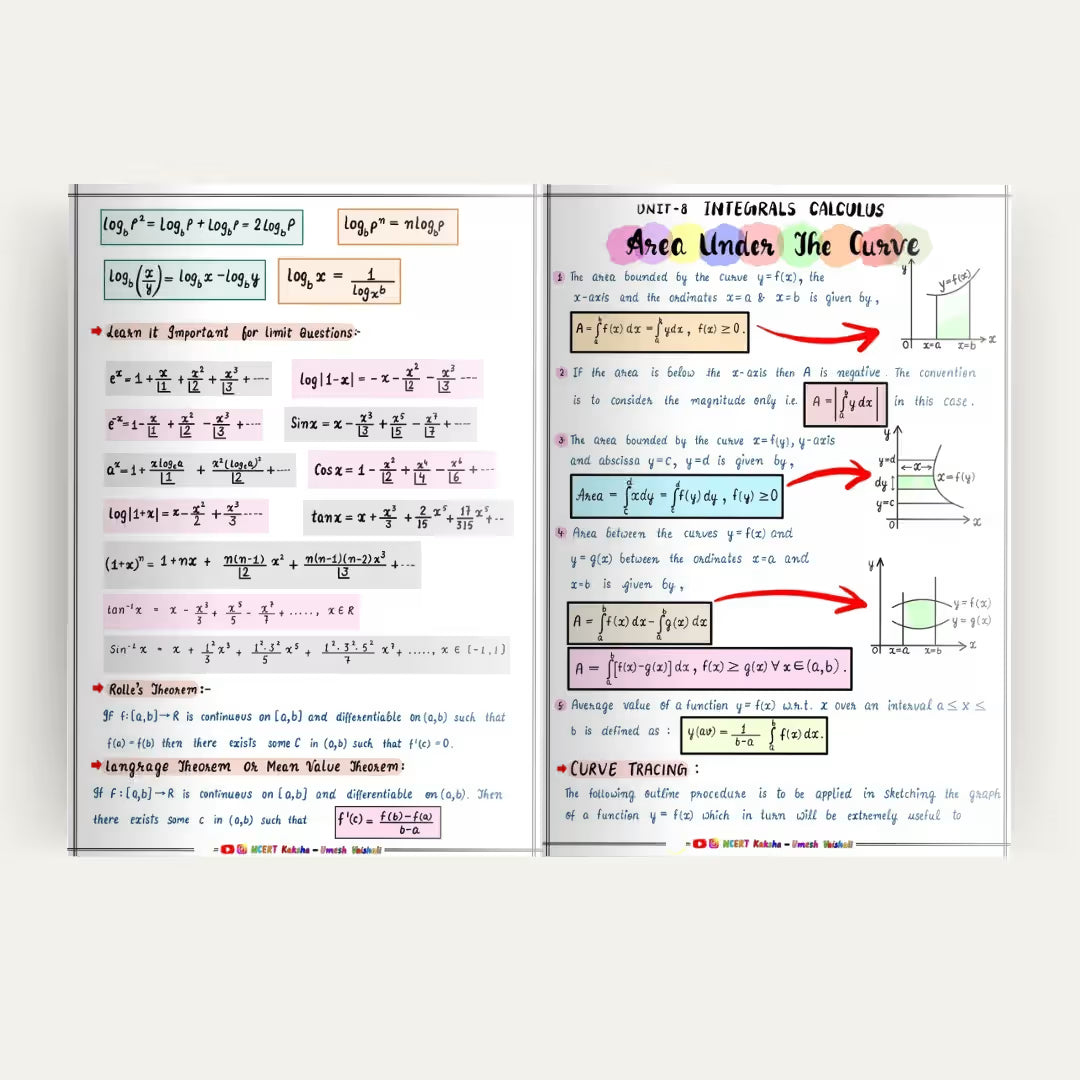 log_b P² = log_b P + log_b P = 2 log_b P
log_b Pⁿ = n log_b P
log_b (x/y) = log_b x - log_b y
log_b x = 1/log_x b
Learn it Important for limit Questions:-
eˣ = 1 + x/⌊1 + x²/⌊2 + x³/⌊3 + ----
log|1-x| = -x - x²/⌊2 - x³/⌊3 ----
e⁻ˣ = 1 - x/⌊1 + x²/⌊2 - x³/⌊3 + ----
Sinx = x - x³/⌊3 + x⁵/⌊5 - x⁷/⌊7 + -----
aˣ = 1 + xlogₑa/⌊1 + x²(logₑa)²/⌊2 + ----
Cosx = 1 - x²/⌊2 + x⁴/⌊4 - x⁶/⌊6 + ---
log|1+x| = x - x²/2 + x³/3 ----
tanx = x + x³/3 + 2/15 x⁵ + 17/315 x⁵ + --
(1+x)ⁿ = 1+nx + n(n-1)/⌊2 x² + n(n-1)(n-2)x³/⌊3 + ---
tan⁻¹x = x - x³/3 + x⁵/5 - x⁷/7 + ....., x∈R
Sin⁻¹x = x + 1²/3 x³ + 1²·3²/5 x⁵ + 1²·3²·5²/7 x⁷ + ....., x ∈ [-1,1}
Rolle's Theorem:-
If f:[a,b]→R is continuous on [a,b] and differentiable on (a,b) such that
f(a) = f(b) then there exists some C in (a,b) such that f'(c) = 0.
langrage Theorem Or Mean Value Theorem:
If f:[a,b]→R is continuous on [a,b] and differentiable on (a,b). Then
there exists some c in (a,b) such that f'(c) = f(b)-f(a)/b-a
NCERT Kaksha - Umesh Vaishali
UNIT-8 INTEGRALS CALCULUS
Area Under The Curve
1 The area bounded by the curve y=f(x), the
x-axis and the ordinates x=a & x=b is given by,
A = ∫ₐᵇ f(x) dx = ∫ₐᵇ ydx, f(x) ≥ 0.
y
y=f(x)
O x=a x=b x
2 If the area is below the x-axis then A is negative. The convention
is to consider the magnitude only i.e. A = |∫ₐᵇ y dx| in this case.
3 The area bounded by the curve x=f(y), y-axis
and abscissa y=c, y=d is given by,
Area = ∫_c^d xdy = ∫_c^d f(y) dy, f(y) ≥ 0
y
y=d
x
dy
x=f(y)
y=c
O x
4 Area between the curves y=f(x) and
y=g(x) between the ordinates x=a and
x=b is given by,
A = ∫ₐᵇ f(x) dx - ∫ₐᵇ g(x) dx
y
y=f(x)
y=g(x)
O x=a x=b x
A = ∫ₐᵇ [f(x)-g(x)] dx, f(x) ≥ g(x) ∀ x∈(a,b).
5 Average value of a function y=f(x) w.r.t. x over an interval a ≤ x ≤
b is defined as : y(av) = 1/b-a ∫ₐᵇ f(x) dx.
CURVE TRACING :
The following outline procedure is to be applied in Sketching the graph
of a function y = f(x) which in turn will be extremely useful to
NCERT Kaksha - Umesh Vaishali